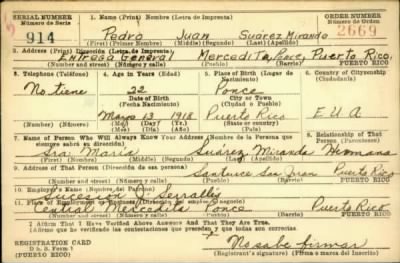 SERIAL NUMBER 1. Name (Print) Nombre (Letra de Imprenta) ORDER NUMBER
Número de Serie Número de Orden
914 Pedro Juan Suárez Miranda 2669
(First) (Primer Nombre) (Middle) (Segundo) (Last) (Apellido)
2. Address (Print) Dirección (Letra de Imprenta)
Entrega General Mercedita, Ponce, Puerto Rico
(Number and street) (Número y calle) (Pueblo) (Barrio) PUERTO RICO
3. Telephone (Teléfono) 4. Age in Years (Edad) 5. Place of Birth (Lugar de Nacimiento) 6. Country of Citizenship (Ciudadanía)
No tiene 22 Ponce
Date of Birth (Fecha Nacimiento) City or Town (Ciudad o Pueblo)
Mayo 13 1918 Puerto Rico E U A
(Mo.) (Day) (Yr.)
(Mes) (Día) (Año)
7. Name of Person Who Will Always Know Your Address (Nombre de la Persona que siempre sabrá su dirección) 8. Relationship of That Person (Parentesco)
Sra. María Suárez Miranda Hermana
(Number) (Middle) (Segundo) (Last) (Apellido)
9. Address of That Person (Dirección de esa persona)
Santurce San Juan Puerto Rico
(Number and street) (Número y calle) (Pueblo) (Barrio) PUERTO RICO
10. Employer's Name (Nombre del Patrono)
Sucesión J. Serrallés
11. Place of Employment or Business (Dirección del empleo o negocio)
Central Mercedita Ponce Puerto Rico
(Number and street) (Número y calle) (Pueblo) (Barrio) PUERTO RICO
I Affirm That I Have Verified Above Answers And That They Are True.
(Afirmo que he verificado las contestaciones que preceden y que todas son correctas.
REGISTRATION CARD No sabe firmar
D. S. S. Form 1
(Registrant's signature) (Firma o marca del Inscrito)